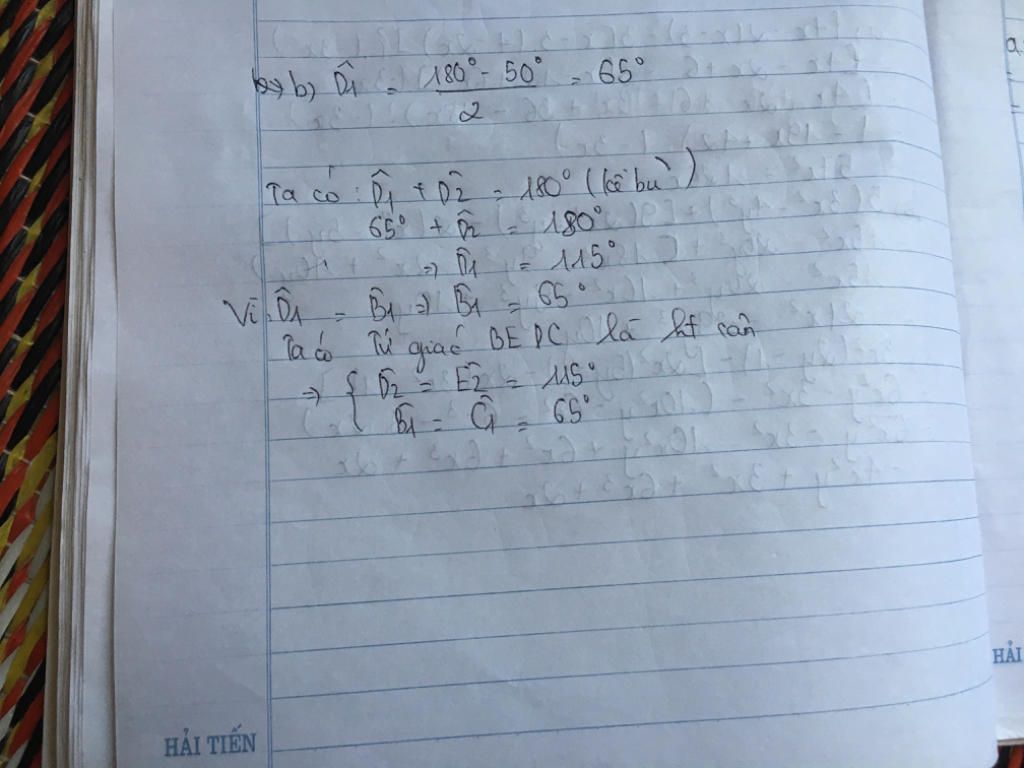 b) D̂1 = (180° - 50°)/2 = 65°
Ta có : D̂1 + D̂2 = 180° (kề bù)
65° + D̂2 = 180°
=> D̂1 = 115°
Vì D̂1 = B̂1 => B̂1 = 65°
Ta có Tứ giác BEDC là ht cân
=> { D̂2 = Ê2 = 115°
B̂1 = Ĉ1 = 65°
HẢI TIẾN
a.
HẢI